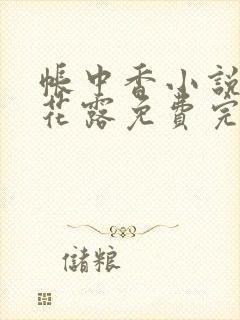 帳中香小說
花露免費完
儲粮